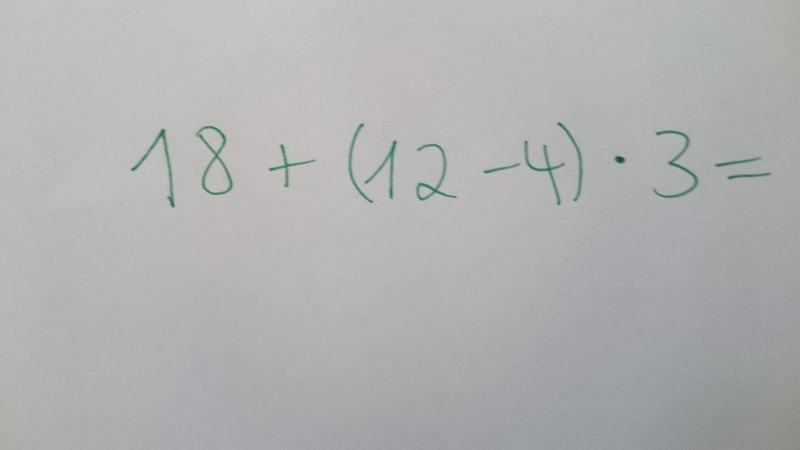 18 + (12 - 4) · 3 =